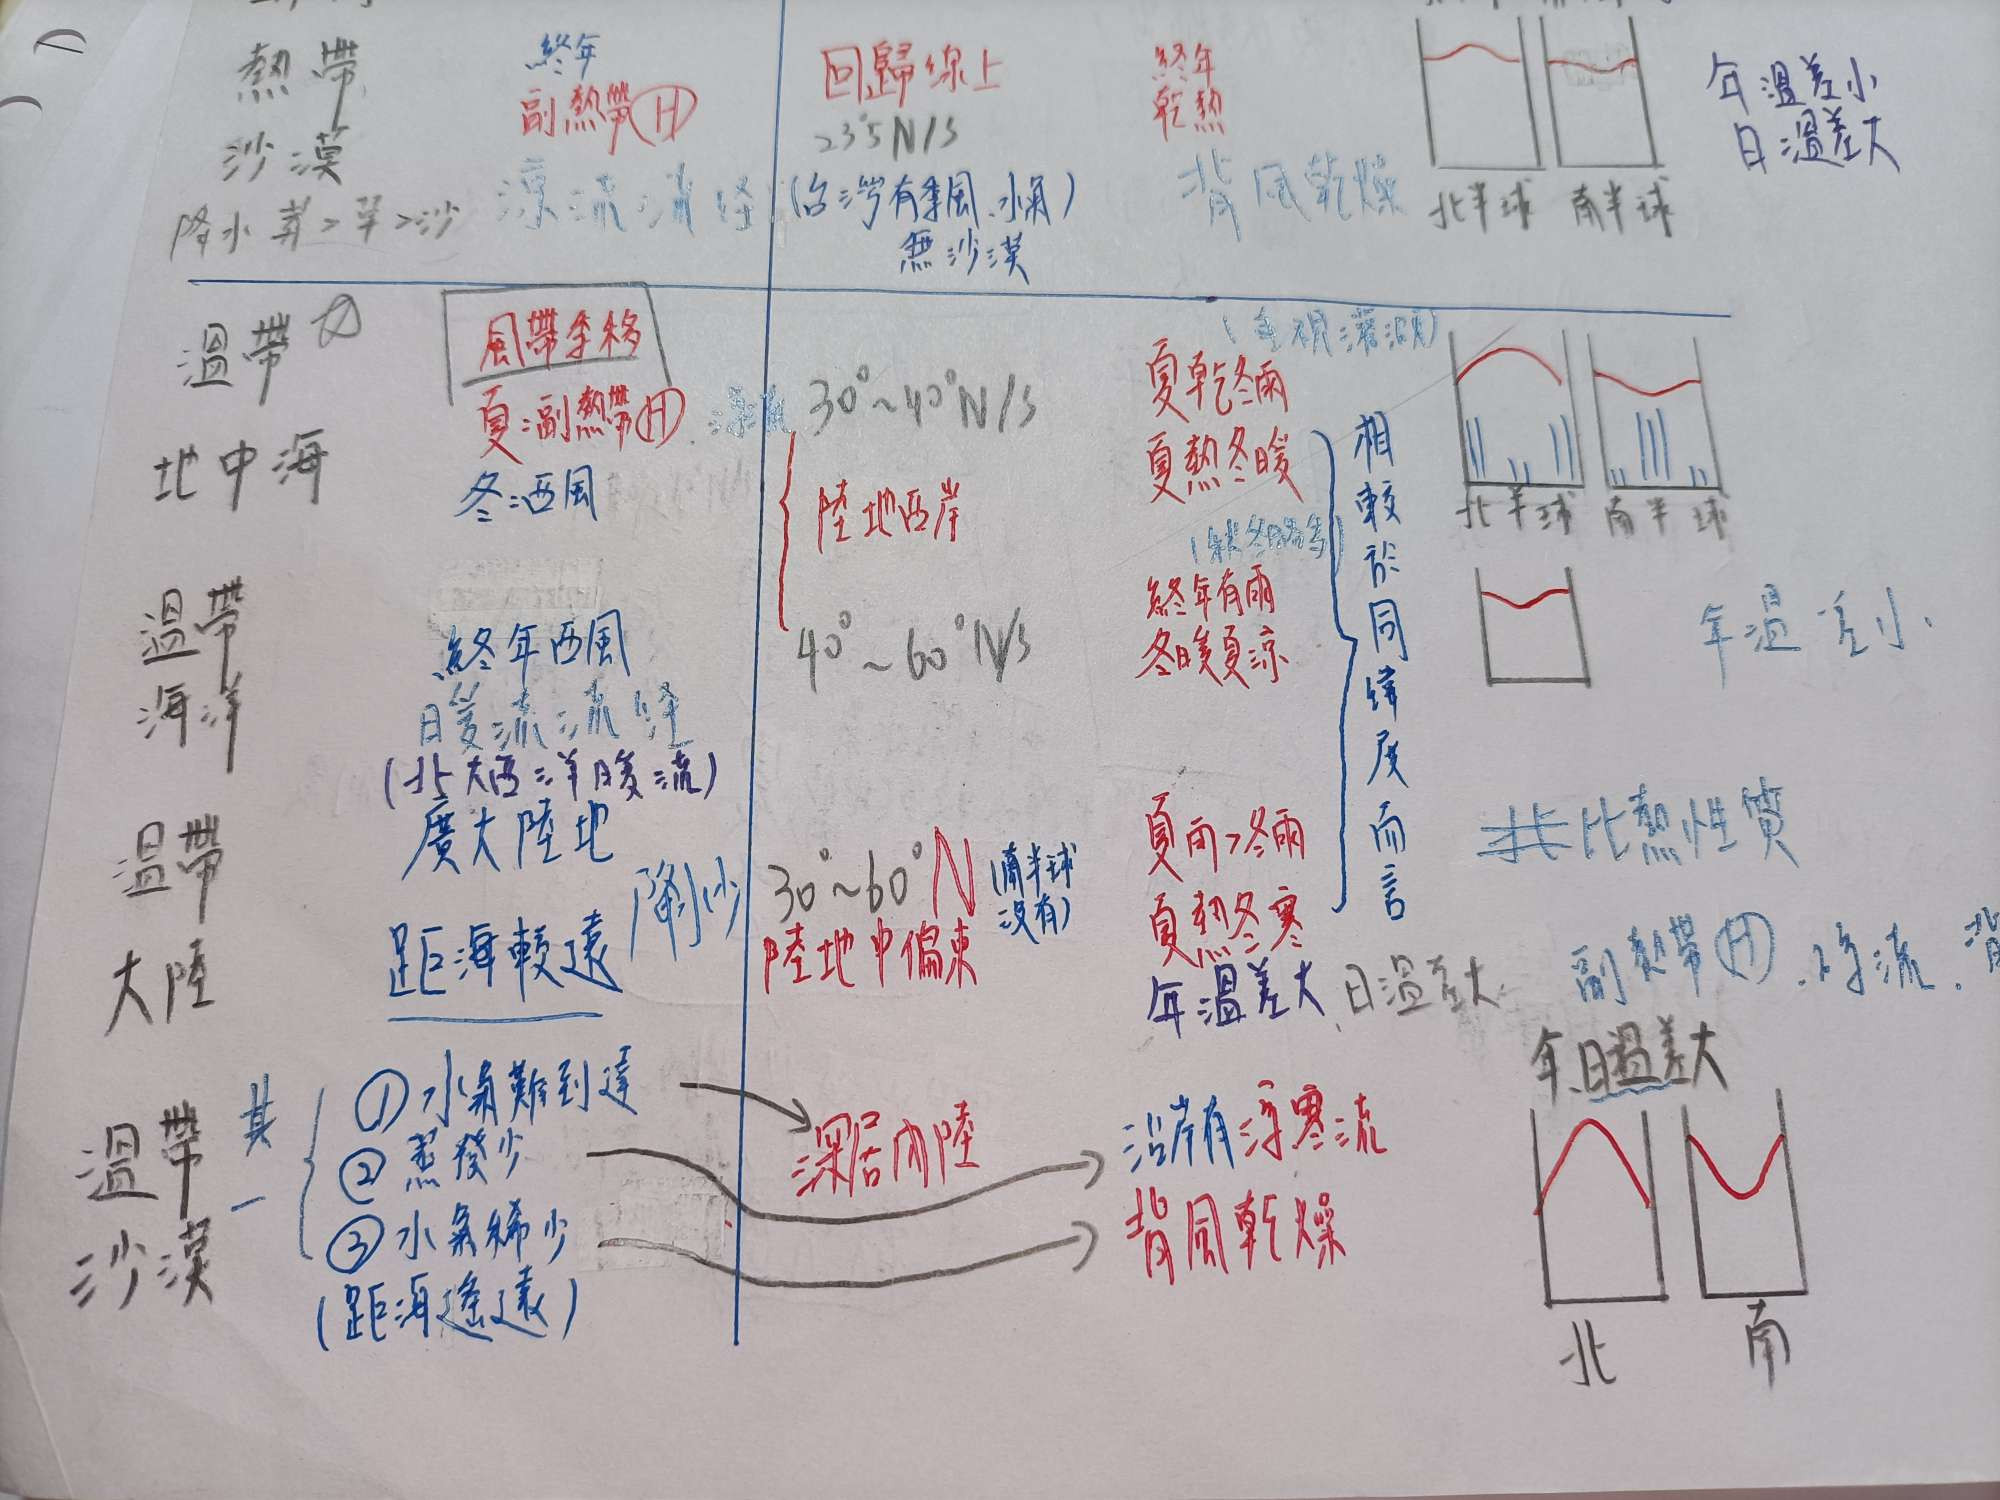 熱帶
沙漠
降水 莽>草>沙
終年
副熱帶H
涼流流經
回歸線上
23°5N/S
(台灣有季風、水氣)
無沙漠
終年
乾熱
背風乾燥
北半球 南半球
年溫差小
日溫差大
溫帶
地中海
風帶季移
夏:副熱帶H、涼流
冬:西風
30°~40°N/S
陸地西岸
(重視灌溉)
夏乾冬雨
夏熱冬暖
北半球 南半球
溫帶
海洋
終年西風
暖流流經
(北大西洋暖流)
40°~60°N/S
(秋冬略多)
終年有雨
冬暖夏涼
相較於同緯度而言
年溫差小
溫帶
大陸
廣大陸地
距海較遠
降少
30°~60°N
(南半球
沒有)
陸地中偏東
夏雨>冬雨
夏熱冬寒
年溫差大、日溫差大
比熱性質
副熱帶H、涼流、背
溫帶
沙漠
其一
①水氣難到達
②蒸發少
③水氣稀少
(距海遙遠)
深居內陸
沿岸有涼寒流
背風乾燥
年、日溫差大
北
南